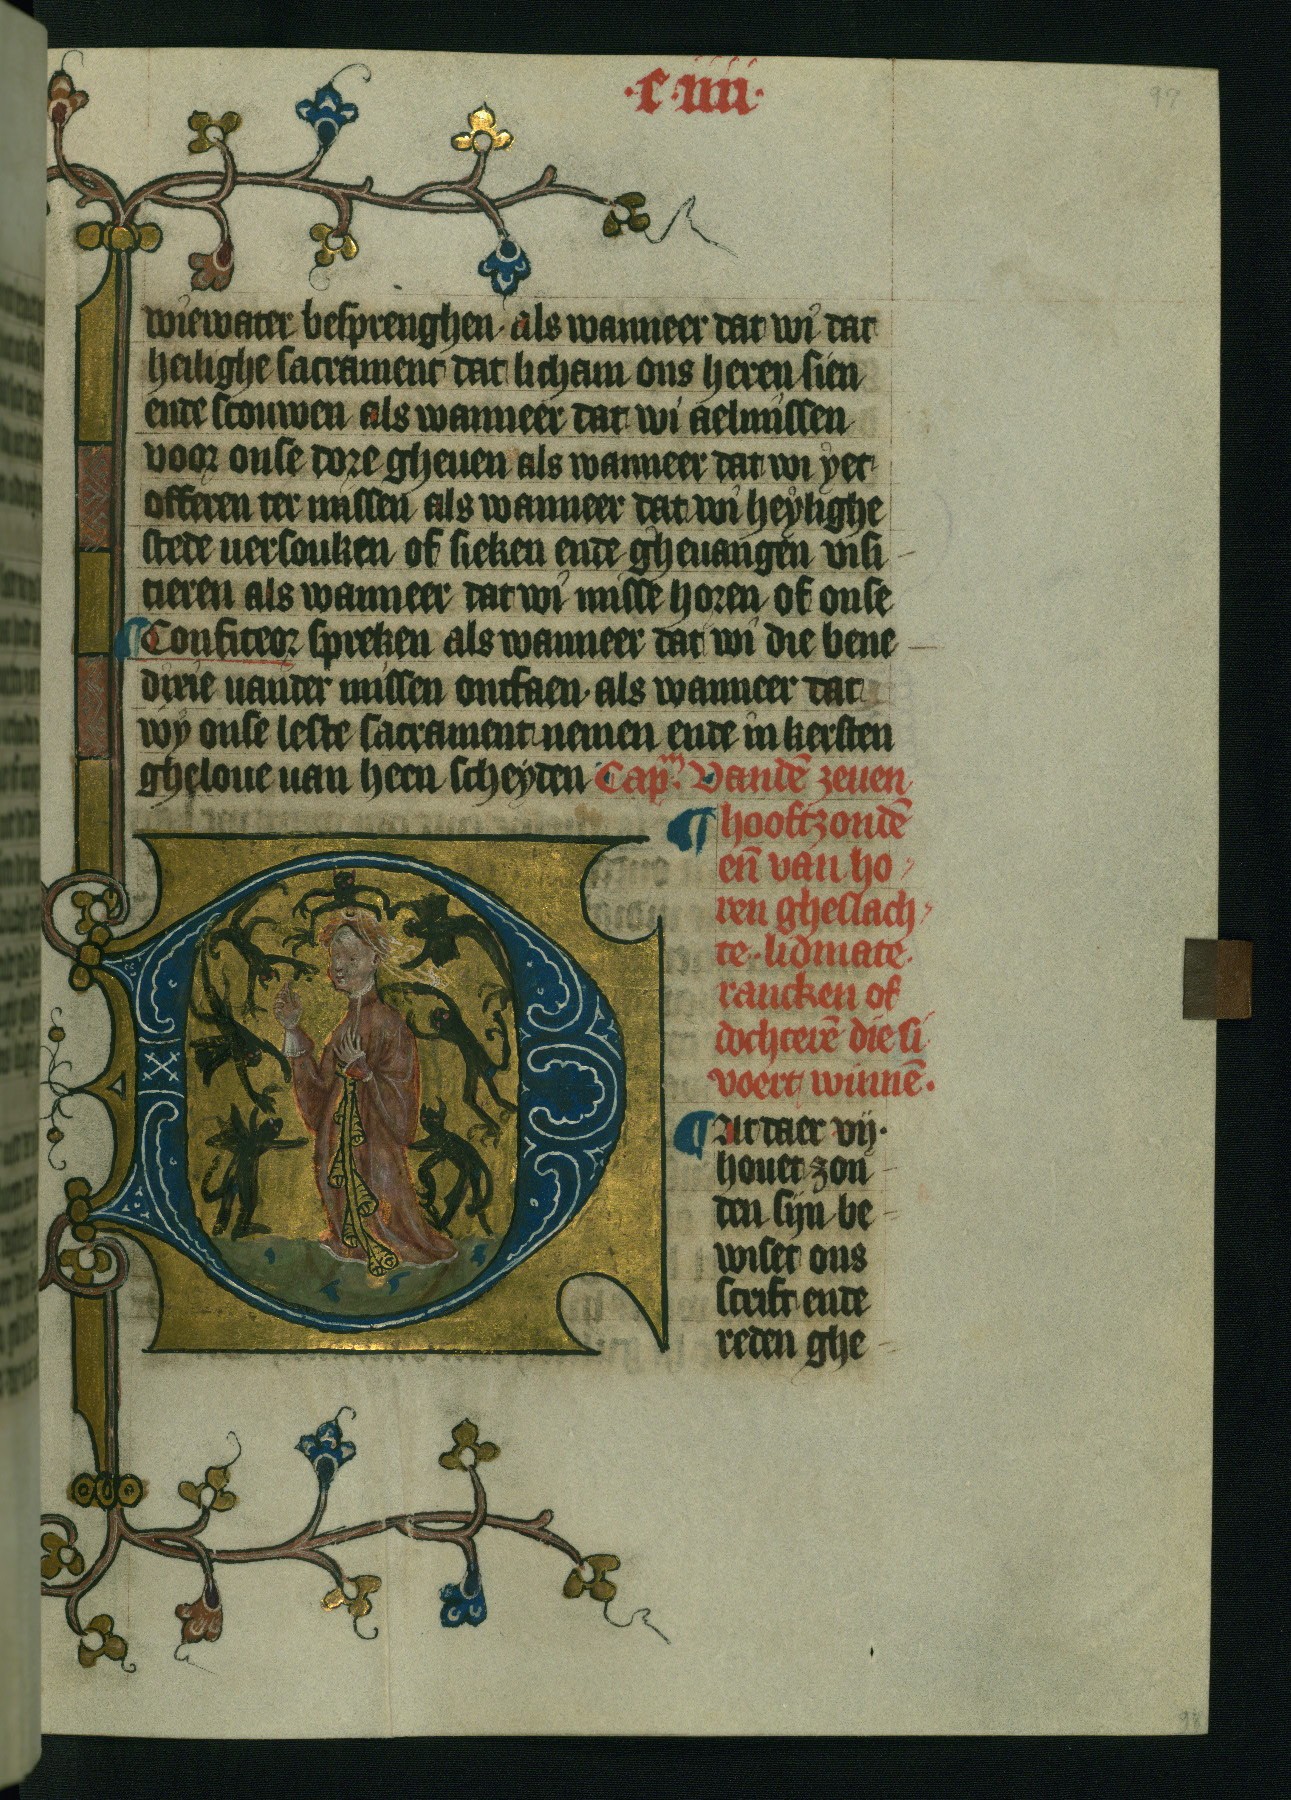 ·c·iiii·
97
wiewater besprenghen· als wanneer dat wi dat
heilighe sacrament dat licham ons heren sien
ende scouwen als wanneer dat wi aelmissen
voor onse dore gheuen als wanneer dat wi yet
offeren ter missen als wanneer dat wi heylighe
stede uersouken of sieken ende gheuangen visi
tieren als wanneer dat wi misse horen of onse
¶ Confiteor spreken als wanneer dat wi die bene
dixie uander missen ontfaen· als wanneer dat
wy onse leste sacrament nemen ende in kersten
gheloue uan heen scheyden Cap͞m. Vandē zeuen
¶ hooftzondē
en̄ van ho
ren gheslach
te· lidmate·
rancken of
dochterē die si
voert winnē·
¶ At daer vij·
houet zon
den sijn be
wiset ons
scrift ende
reden ghe
98